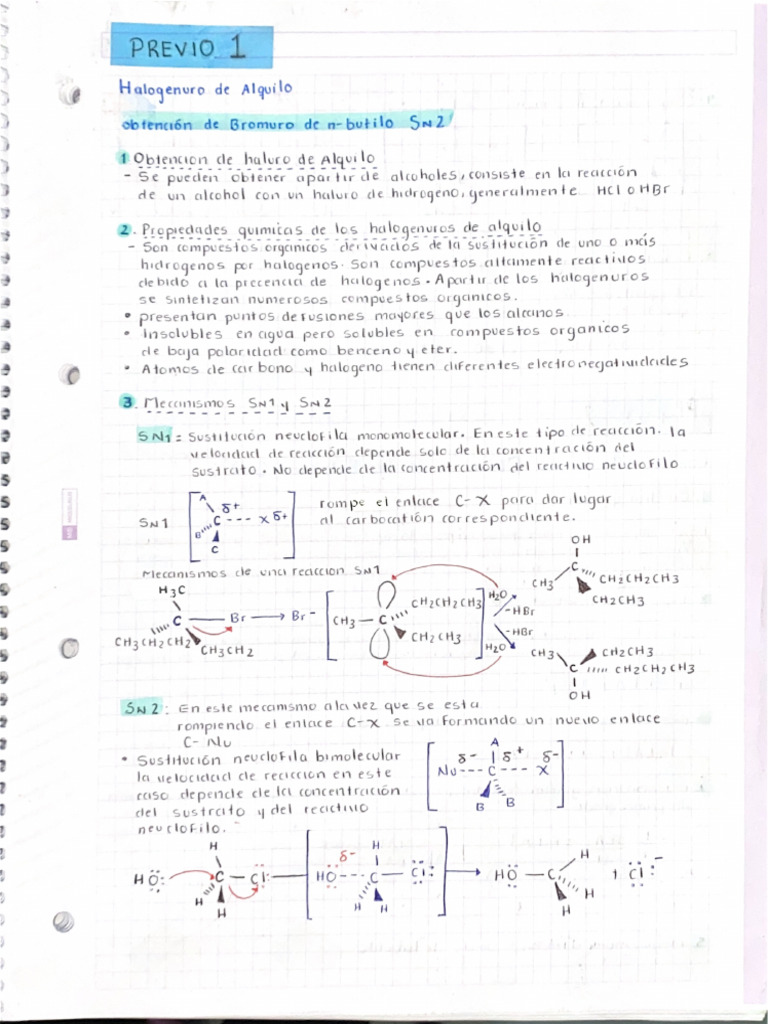 PREVIO 1
Halogenuro de Alquilo
obtención de Bromuro de n-butilo SN2
1 Obtencion de haluro de Alquilo
- Se pueden obtener apartir de alcoholes, consiste en la reacción
de un alcohol con un haluro de hidrogeno, generalmente HCl o HBr
2. Propiedades quimicas de los halogenuros de alquilo
- Son compuestos organicos derivados de la sustitución de uno o más
hidrogenos por halogenos. Son compuestos altamente reactivos
debido a la precencia de halogenos. Apartir de los halogenuros
se sintetizan numerosos compuestos organicos.
• presentan puntos de fusiones mayores que los alcanos
• Insolubles en agua pero solubles en compuestos organicos
de baja polaridad como benceno y eter.
• Atomos de carbono y halogeno tienen diferentes electronegatividades
3. Mecanismos SN1 y SN2
SN1 = Sustitución neuclofila monomolecular. En este tipo de reacción. la
velocidad de reacción depende solo de la concentración del
sustrato. No depende de la concentración del reactivo neuclofilo
SN1
A
δ+
C --- X δ+
B
C
rompe el enlace C-X para dar lugar
al carbocatión correspondiente.
Mecanismos de una reaccion SN1
H3C
C — Br → Br-
CH3CH2CH2
CH3CH2
CH3 — C
CH2CH2CH3
CH2CH3
H2O
-HBr
-HBr
H2O
OH
C
CH3
CH2CH2CH3
CH2CH3
CH3
CH2CH3
C
CH2CH2CH3
OH
SN2: En este mecanismo a la vez que se esta
rompiendo el enlace C-X se va formando un nuevo enlace
C- Nu
• Sustitución neuclofila bimolecular
la velocidad de reaccion en este
caso depende de la concentración
del sustrato y del reactivo
neuclofilo.
A
δ- δ+ δ-
Nu --- C --- X
B B
H
HO: C — Cl:
H
H
δ- H
HO --- C — Cl:
H H
H
HO — C
H
H
, :Cl: -